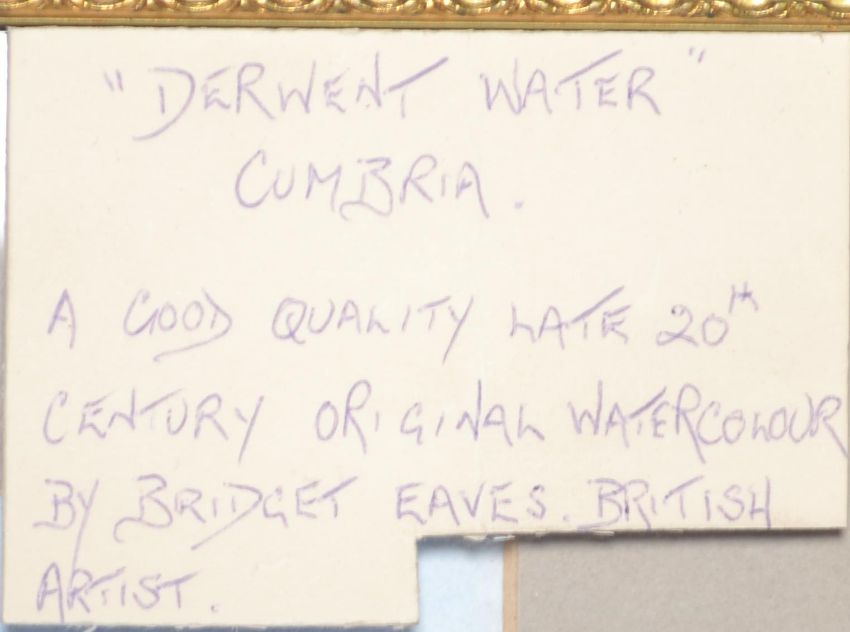 "DERWENT WATER"
CUMBRIA.
A GOOD QUALITY LATE 20TH
CENTURY ORIGINAL WATERCOLOUR
BY BRIDGET EAVES. BRITISH
ARTIST.